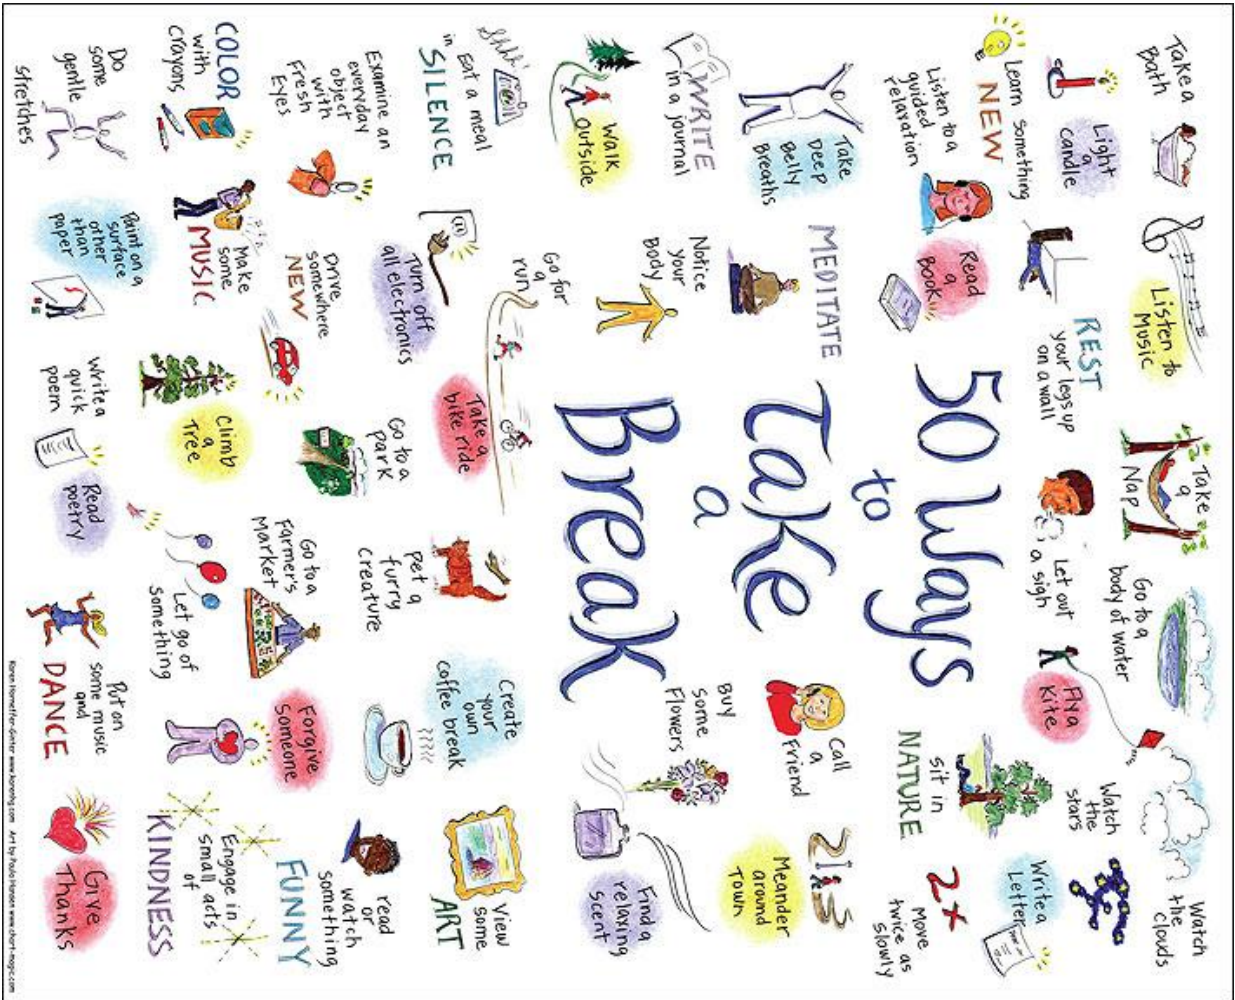 Take a
Bath
Listen to
Music
Take
a
Nap
Go to a
body of water
Watch
the
clouds
Light
a
candle
Learn something
NEW
REST
your legs up
on a wall
Let out
a sigh
Fly a
Kite
Watch
the
stars
Write a
Letter
Listen to a
guided
relaxation
Read
a
Book
50 Ways
to
Take
a
Break
sit in
NATURE
2x
Move
twice as
slowly
Take
Deep
Belly
Breaths
MEDITATE
Call
a
Friend
Meander
around
Town
WRITE
in a journal
Notice
your
Body
Buy
some
Flowers
Find a
relaxing
Scent
Walk
Outside
Go for
a
run
Shhh!
Eat a meal
in
SILENCE
Turn off
all electronics
Take a
bike ride
Pet a
furry
creature
Create
your
own
coffee break
View
some
ART
Examine an
everyday
object
with
Fresh
Eyes
Drive
somewhere
NEW
Go to a
Park
Go to a
Farmer's
Market
Forgive
Someone
read
or
watch
something
FUNNY
COLOR
with
crayons
Make
some
MUSIC
Climb
a
Tree
Let go of
something
Engage in
small acts
of
KINDNESS
Do
some
gentle
stretches
Paint on a
surface
other
than
paper
Write a
quick
poem
Read
poetry
Put on
some music
and
DANCE
Give
Thanks
Karen Horneffer-Ginter www.karenhg.com Art by Paula Hansen www.chart-magic.com